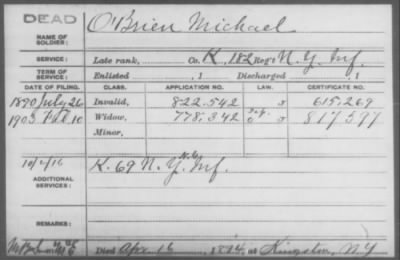 DEAD
O'Brien Michael
NAME OF SOLDIER:
SERVICE: Late rank, Co. K, 182 Reg't N.Y. Inf.
TERM OF SERVICE: Enlisted , 1 Discharged , 1
DATE OF FILING. CLASS. APPLICATION NO. LAW. CERTIFICATE NO.
1890 July 26 Invalid, 822.542 615,269
1903 Feb 10 Widow, 778,342 817597
Minor,
10/4/16
K. 69 N.Y. Inf.
ADDITIONAL SERVICES:
REMARKS:
Died Apr. 16, 1894, at Kingston, N.Y.